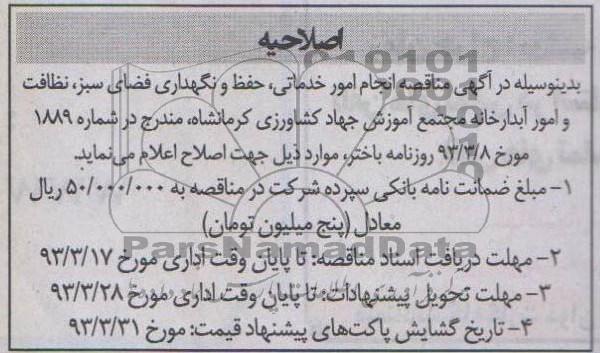 اصلاحیه
بدینوسیله در آگهی مناقصه انجام امور خدماتی، حفظ و نگهداری فضای سبز، نظافت
و امور آبدارخانه مجتمع آموزش جهاد کشاورزی کرمانشاه، مندرج در شماره ۱۸۸۹
مورخ ۹۳/۳/۸ روزنامه باختر، موارد ذیل جهت اصلاح اعلام می‌نماید.
۱- مبلغ ضمانت نامه بانکی سپرده شرکت در مناقصه به ۵۰/۰۰۰/۰۰۰ ریال
معادل (پنج میلیون تومان)
ParsNamadData
۲- مهلت دریافت اسناد مناقصه: تا پایان وقت اداری مورخ ۹۳/۳/۱۷
۳- مهلت تحویل پیشنهادات: تا پایان وقت اداری مورخ ۹۳/۳/۲۸
۴- تاریخ گشایش پاکت‌های پیشنهاد قیمت: مورخ ۹۳/۳/۳۱